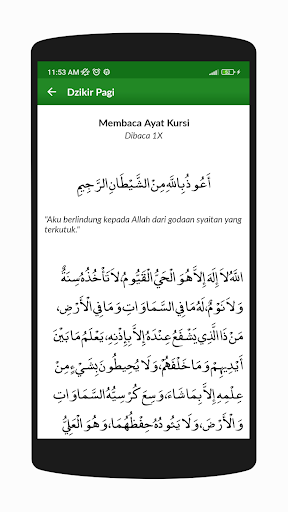 11:53 AM
Dzikir Pagi
Membaca Ayat Kursi
Dibaca 1X
أَعُوذُ بِاللَّهِ مِنَ الشَّيْطَانِ الرَّجِيمِ
"Aku berlindung kepada Allah dari godaan syaitan yang
terkutuk."
اللَّهُ لاَ إِلَهَ إِلاَّ هُوَ الْحَيُّ الْقَيُّومُ، لاَ تَأْخُذُهُ سِنَةٌ
وَلاَ نَوْمٌ، لَهُ مَا فِي السَّمَاوَاتِ وَمَا فِي الْأَرْضِ،
مَنْ ذَا الَّذِي يَشْفَعُ عِنْدَهُ إِلاَّ بِإِذْنِهِ، يَعْلَمُ مَا بَيْنَ
أَيْدِيهِمْ وَمَا خَلْفَهُمْ، وَلَا يُحِيطُونَ بِشَيْءٍ مِنْ
عِلْمِهِ إِلاَّ بِمَا شَاءَ، وَسِعَ كُرْسِيُّهُ السَّمَاوَاتِ
وَالْأَرْضَ، وَلَا يَئُودُهُ حِفْظُهُمَا، وَهُوَ الْعَلِيُّ